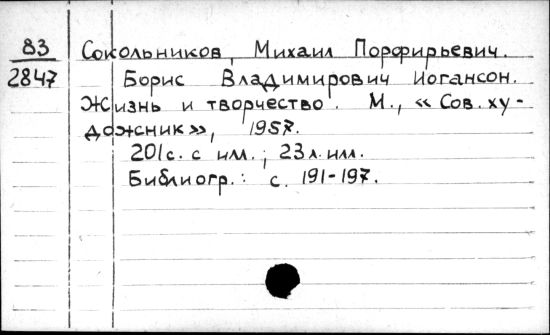 83 Сокольников, Михаил Порфирьевич.
2847 Борис Владимирович Иогансон.
Жизнь и творчество. М., «Сов. ху-
дожник», 1957.
201с. с илл.; 23 л. илл.
Библиогр.: с. 191-197.